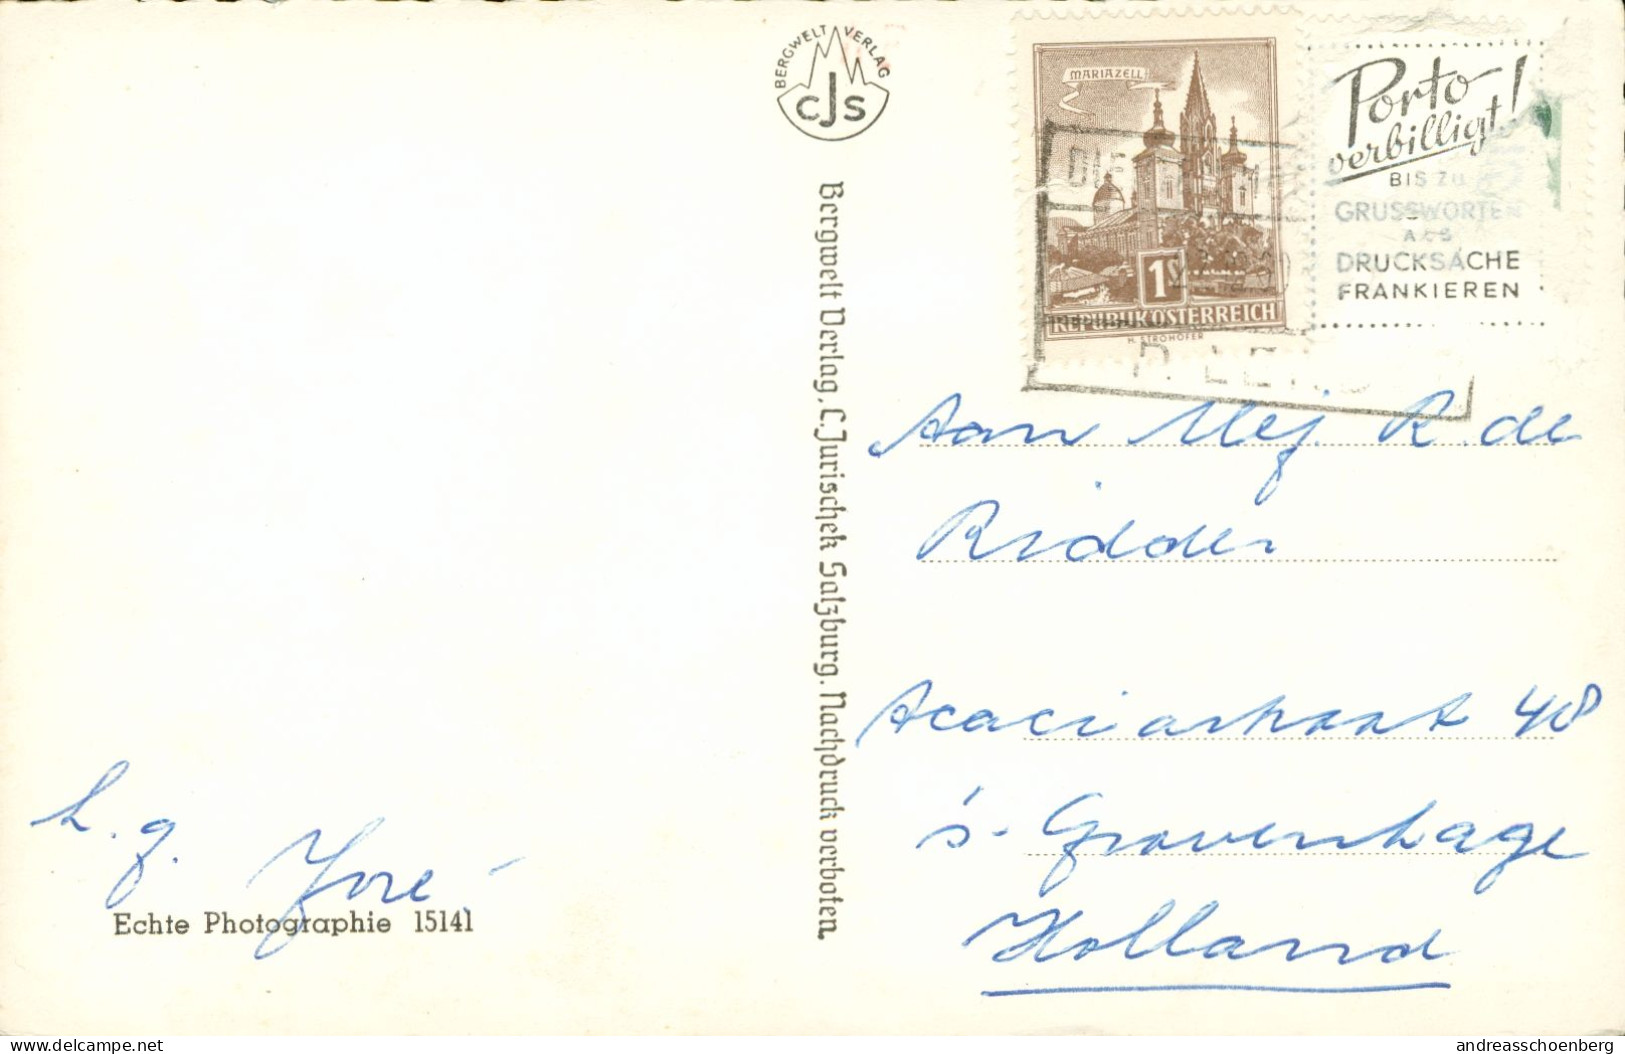 BERGWELT VERLAG
CJS
MARIAZELL
1S
REPUBLIK ÖSTERREICH
H. STROHOFER
Porto
verbilligt!
BIS ZU
GRUSSWORTEN
ALS
DRUCKSACHE
FRANKIEREN
DIE
Bergwelt Verlag, C. Jurischek Salzburg. Nachdruck verboten.
Aan Mej. R. de
Ridder
Acaciastraat 48
's-Gravenhage
Holland
h. g. José
Echte Photographie 15141
delcampe.net
andreasschoenberg